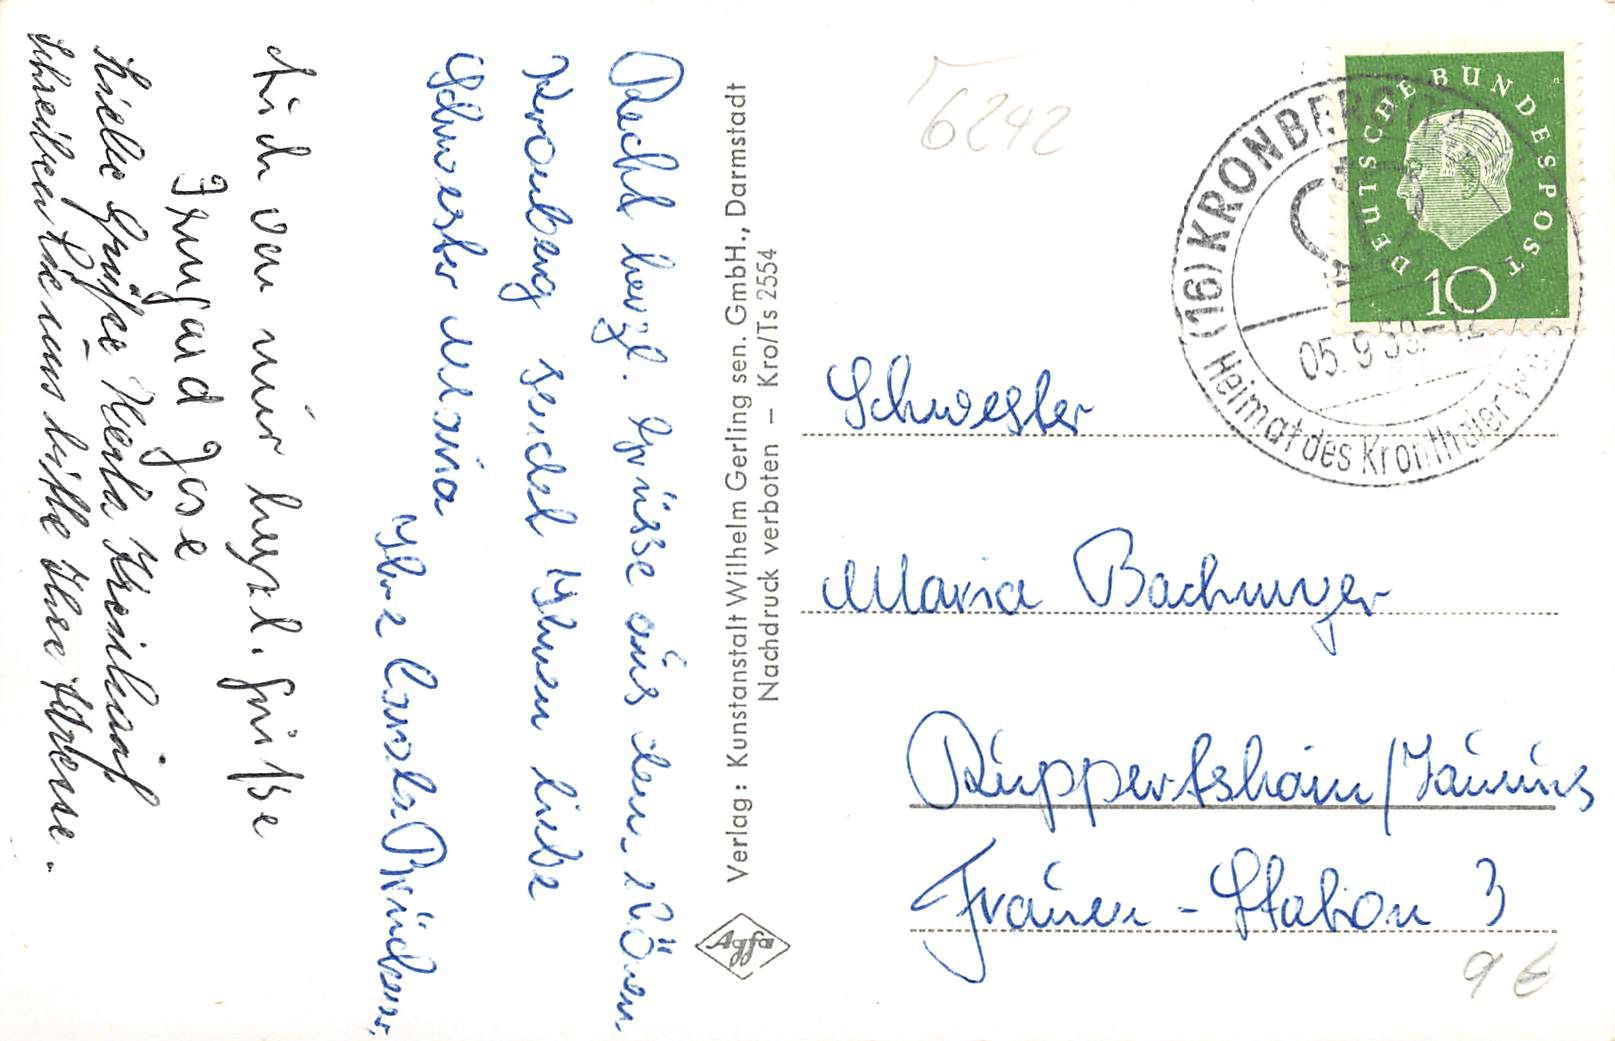 Recht herzl. Grüsse aus dem schönen
Kronberg sendet Ihnen liebe
Schwester Maria
Ihre
Auch von mir herzl. Grüße
Irmgard Jose
Liebe Grüße Herta
Schreiben Sie uns bitte Ihre Adresse.
Verlag: Kunstanstalt Wilhelm Gerling sen. GmbH., Darmstadt
Nachdruck verboten – Kro/Ts 2554
Agfa
6242
DEUTSCHE BUNDESPOST
10
(16) KRONBERG
05.9.59.-12
Heimat des Kronthaler
Schwester
Maria Bachmeyer
Ruppertshain/Taunus
Frauen-Station 3
9 €